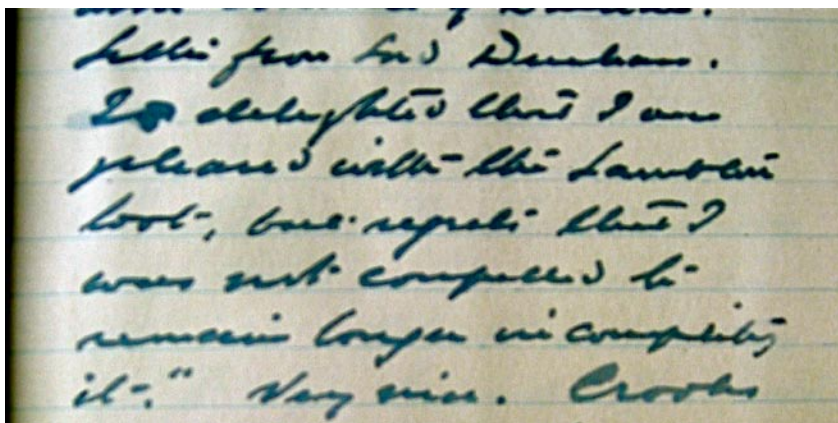 Letter from Lord Durham.
Is delighted that I am
pleased with the Lambton
book, but regrets that I
was not compelled to
remain longer in completing
it." Very nice. Crooks